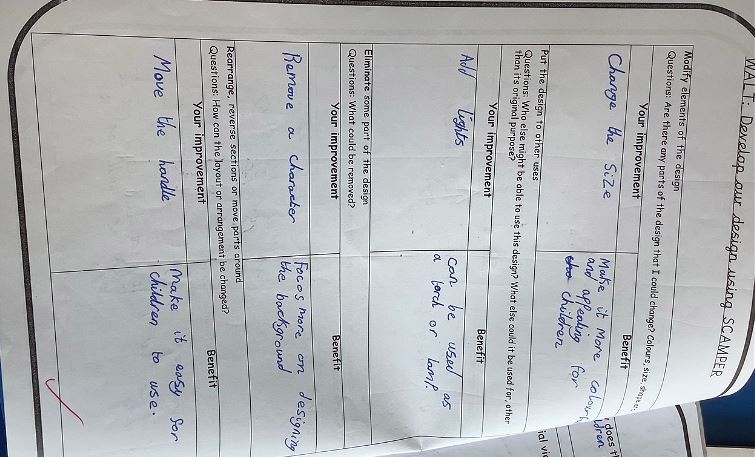 WALT: Develop our design using SCAMPER
Modify elements of the design
Questions: Are there any parts of the design that I could change? Colours, size, shape
Your improvement
Benefit
Change the size
Make it more colourful
and appealing for
children
Put the design to other uses
Questions: Who else might be able to use this design? What else could it be used for, other
than its original purpose?
Your improvement
Benefit
Add lights
can be used as
a torch or lamp.
Eliminate some part of the design
Questions: What could be removed?
Your improvement
Benefit
Remove a character
Focos more on designing
the background
Rearrange, reverse sections or move parts around
Questions: How can the layout or arrangement be changed?
Your improvement
Benefit
Move the handle
Make it easy for
children to use.
does